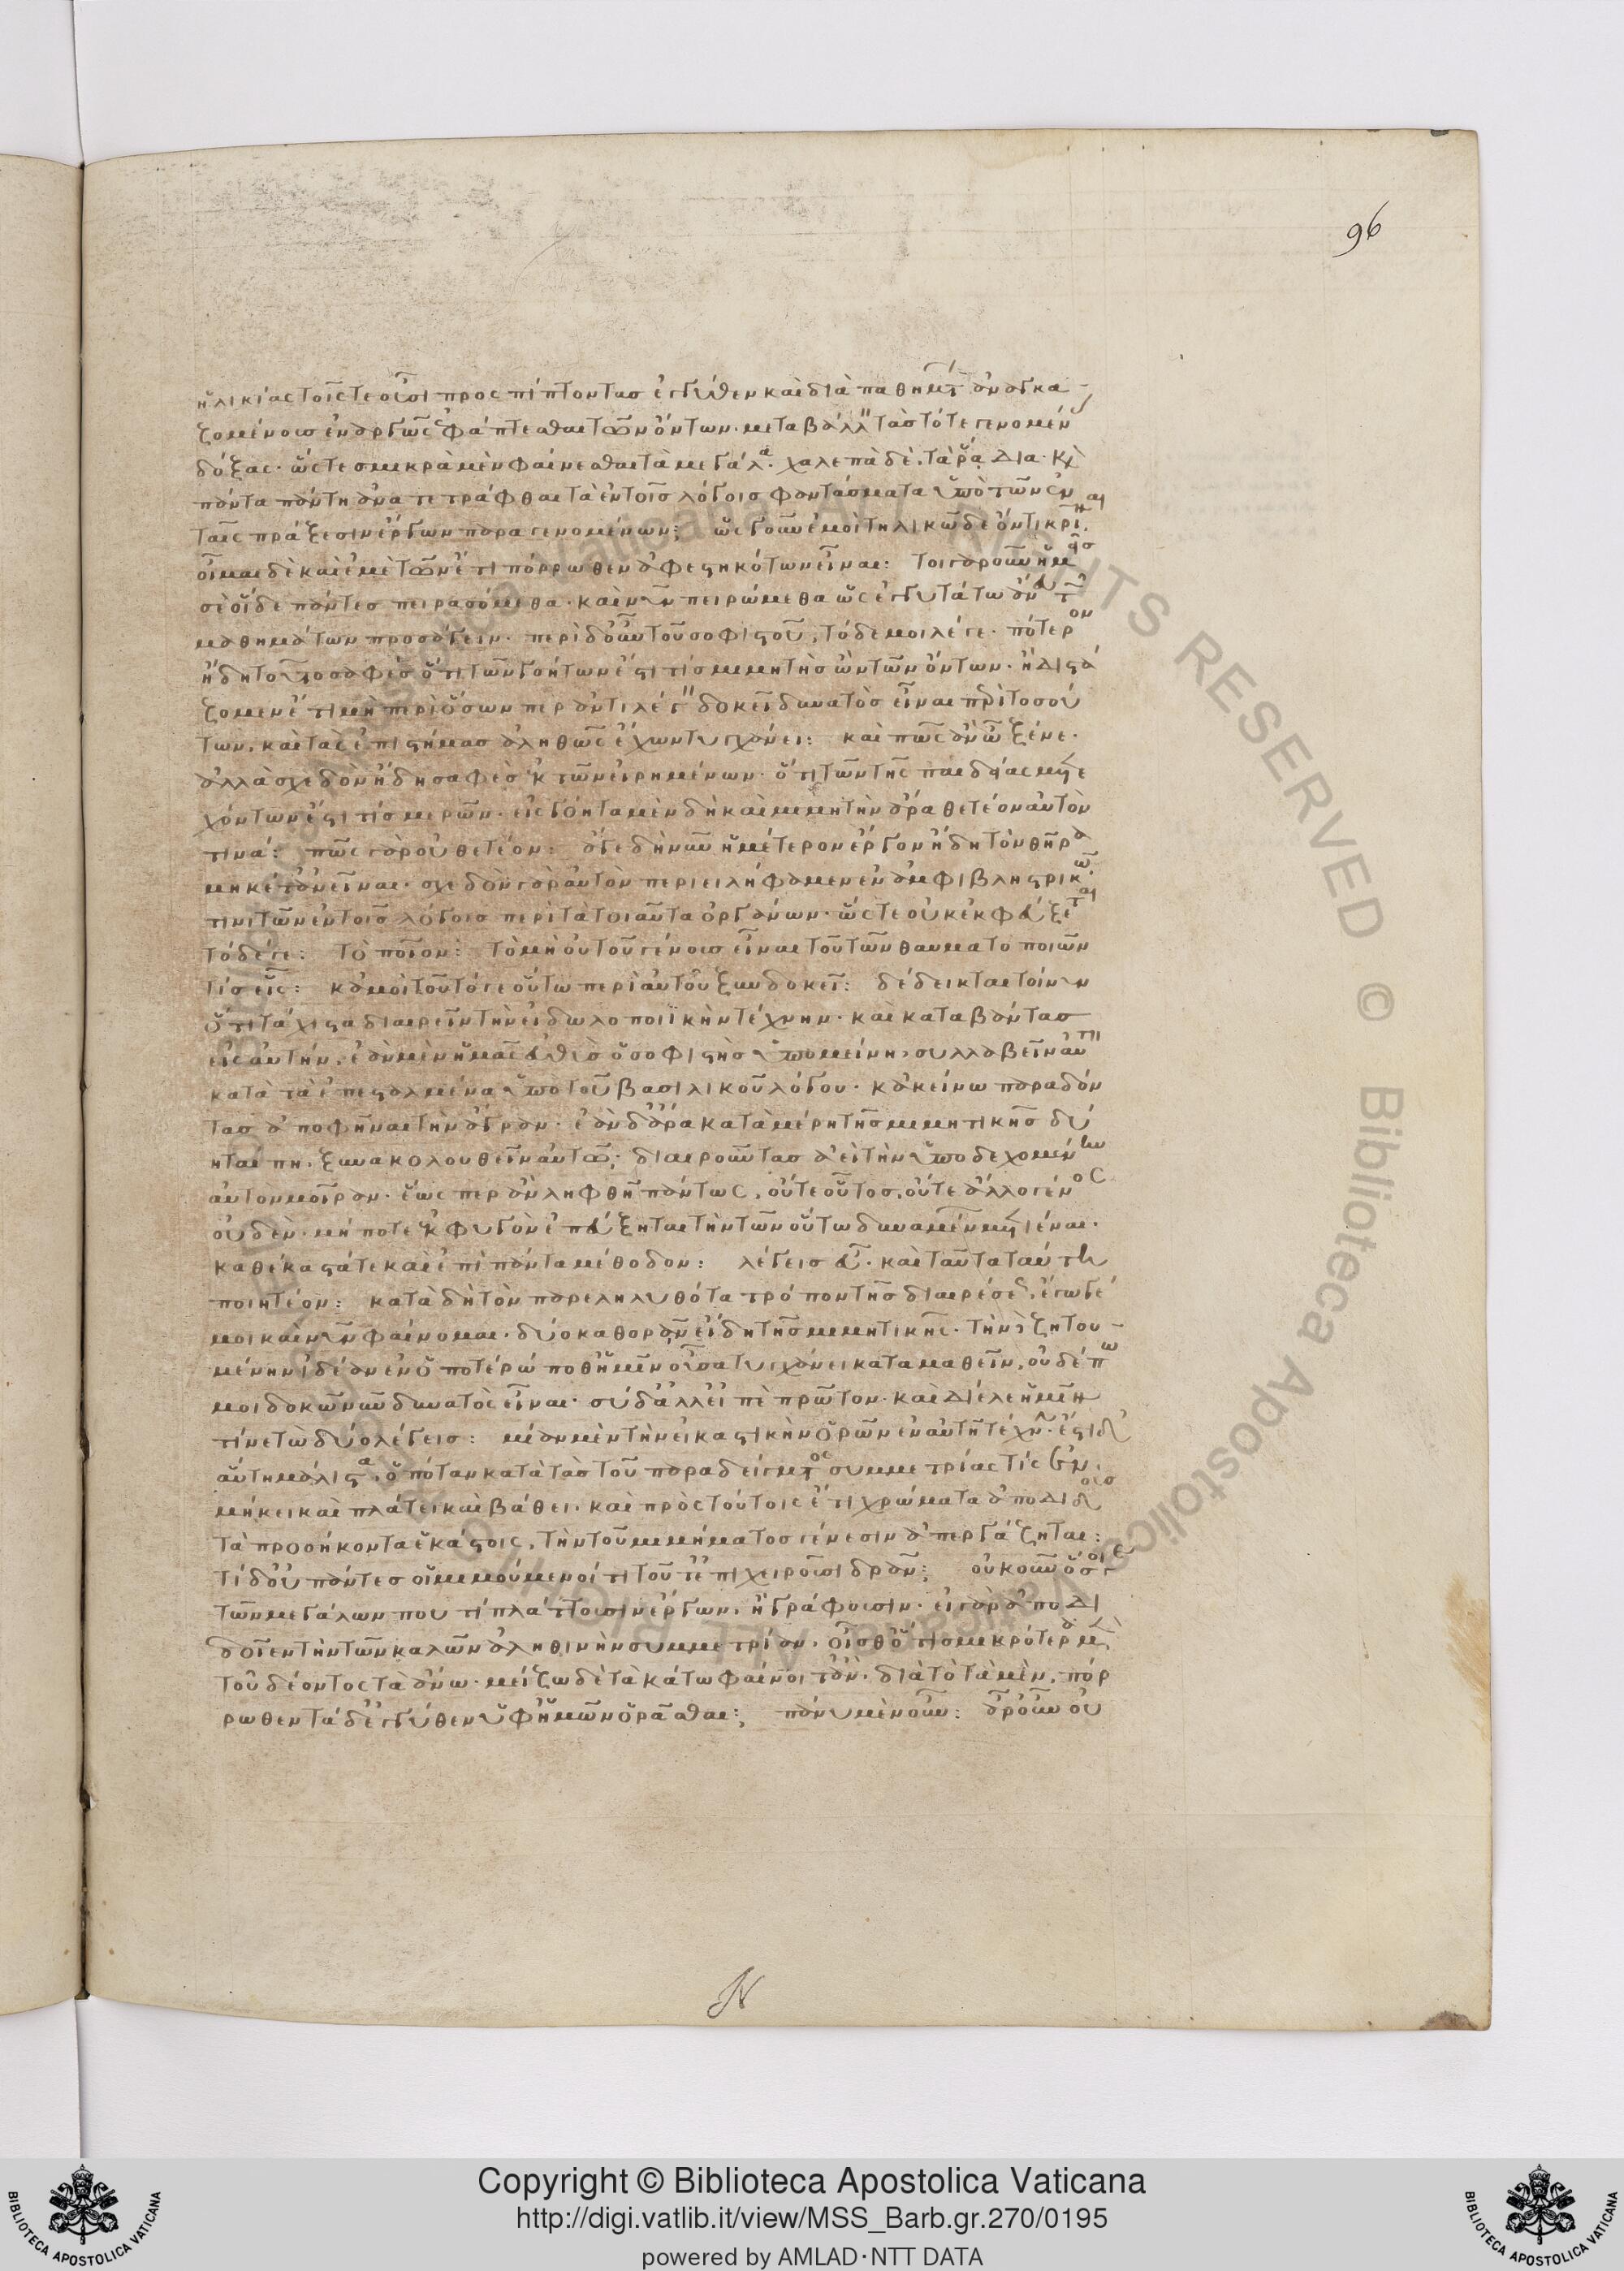 96
ἡλικίας τοῖς τε οὖσι προσπίπτοντας ἐγγύθεν καὶ διὰ παθημάτων ἀναγκα
ζομένοις ἐναργῶς ἐφάπτεσθαι τῶν ὄντων· μεταβάλλειν τὰς τότε γενομένας
δόξας· ὥστε σμικρὰ μὲν φαίνεσθαι τὰ μεγάλα· χαλεπὰ δὲ, τὰ ῥᾴδια· καὶ
πάντα πάντη ἀνατετράφθαι τὰ ἐν τοῖς λόγοις φαντάσματα ὑπὸ τῶν ἐν
ταῖς πράξεσιν ἔργων παραγενομένων; ὡς γοῦν ἐμοὶ τηλικῷδε ὄντι κρῖναι·
οἶμαι δὲ καὶ ἐμὲ τῶν ἔτι πόρρωθεν ἀφεστηκότων εἶναι: τοιγαροῦν ἡμεῖς
σὲ οἵδε πάντες πειρασόμεθα· καὶ νῦν πειρώμεθα ὡς ἐγγυτάτω ἄνευ τῶν
μαθημάτων προσάγειν· περὶ δ' οὖν τοῦ σοφιστοῦ, τόδε μοι λέγε· πότερον
ἤδη τοῦτο σαφὲς ὅτι τῶν γοήτων ἐστί τις μιμητὴς ὢν τῶν ὄντων· ἢ διστά
ζομεν ἔτι μὴ περὶ ὅσωνπερ ἀντιλέγειν δοκεῖ δυνατὸς εἶναι περὶ τοσού
των, καὶ τὰς ἐπιστήμας ἀληθῶς ἔχων τυγχάνει: καὶ πῶς ἂν ὦ ξένε·
ἀλλὰ σχεδὸν ἤδη σαφὲς ἐκ τῶν εἰρημένων· ὅτι τῶν τῆς παιδιᾶς μετε
χόντων ἐστί τις μερῶν· εἰς γόητα μὲν δὴ καὶ μιμητὴν ἄρα θετέον αὐτὸν
τινά: πῶς γὰρ οὐ θετέον: ἄγε δὴ νῦν ἡμέτερον ἔργον ἤδη τὸν θῆρα
μηκέτ' ἀνεῖναι· σχεδὸν γὰρ αὐτὸν περιειλήφαμεν ἐν ἀμφιβληστρικῷ
τινι τῶν ἐν τοῖς λόγοις περὶ τὰ τοιαῦτα ὀργάνων· ὥστε οὐκ ἐκφεύξεται
τόδε γε: τὸ ποῖον: τὸ μὴ οὐ τοῦ γένους εἶναι τοῦ τῶν θαυματοποιῶν
τίς εἷς: κἀμοὶ τοῦτό γε οὕτω περὶ αὐτοῦ ξυνδοκεῖ: δέδεικται τοίνυν
ὅτι τάχιστα διαιρεῖν τὴν εἰδωλοποιϊκὴν τέχνην· καὶ καταβάντας
εἰς αὐτήν, ἐὰν μὲν ἡμᾶς εὐθὺς ὁ σοφιστὴς ὑπομείνῃ, συλλαβεῖν αὐτὸν
κατὰ τὰ ἐπεσταλμένα ὑπὸ τοῦ βασιλικοῦ λόγου· κἀκείνῳ παραδόν
τας ἀποφῆναι τὴν ἄγραν· ἐὰν δ' ἄρα κατὰ μέρη τῆς μιμητικῆς δύ
ηταί πη, ξυνακολουθεῖν αὐτῷ; διαιροῦντας ἀεὶ τὴν ὑποδεχομένην
αὐτὸν μοῖραν· ἕωσπερ ἂν ληφθῇ πάντως, οὔτε οὗτος, οὔτε ἄλλο γένος
οὐδὲν· μή ποτε ἐκφυγὸν ἐπεύξηται τὴν τῶν οὕτω δυναμένων μετιέναι·
καθ' ἕκαστά τε καὶ ἐπὶ πάντα μέθοδον: λέγεις εὖ· καὶ ταῦτα ταύτῃ
ποιητέον: κατὰ δὴ τὸν παρεληλυθότα τρόπον τῆς διαιρέσεως, ἔγωγέ
μοι καὶ νῦν φαίνομαι· δύο καθορᾶν εἴδη τῆς μιμητικῆς· τὴν δὲ ζητου
μένην ἰδέαν ἐν ὁποτέρῳ ποθ' ἡμῖν οὖσα τυγχάνει καταμαθεῖν, οὐδέπω
μοι δοκῶ νῦν δυνατὸς εἶναι· σὺ δ' ἀλλ' εἰπὲ πρῶτον· καὶ δίελε ἡμῖν
τίνε τὼ δύο λέγεις: μίαν μὲν τὴν εἰκαστικὴν ὁρῶν ἐν αὐτῇ τέχνην· ἔστι δ'
αὕτη μάλιστα, ὁπόταν κατὰ τὰς τοῦ παραδείγματος συμμετρίας τίς ἐν
μήκει καὶ πλάτει καὶ βάθει· καὶ πρὸς τούτοις ἔτι χρώματα ἀποδιδοὺς
τὰ προσήκοντα ἑκάστοις, τὴν τοῦ μιμήματος γένεσιν ἀπεργάζηται:
τί δ' οὐ πάντες οἱ μιμούμενοί τι τοῦτ' ἐπιχειροῦσι δρᾶν; οὐκοῦν ὅσοι γε
τῶν μεγάλων πού τι πλάττουσιν ἔργων, ἢ γράφουσιν· εἰ γὰρ ἀποδι
δοῖεν τὴν τῶν καλῶν ἀληθινὴν συμμετρίαν, οἶσθ' ὅτι σμικρότερα μὲν
τοῦ δέοντος τὰ ἄνω· μείζω δὲ τὰ κάτω φαίνοιτ' ἂν· διὰ τὸ τὰ μὲν, πόρ
ρωθεν τὰ δ' ἐγγύθεν ὑφ' ἡμῶν ὁρᾶσθαι; πάνυ μὲν οὖν: ἆρ' οὖν οὐ
N
Copyright © Biblioteca Apostolica Vaticana
http://digi.vatlib.it/view/MSS_Barb.gr.270/0195
powered by AMLAD·NTT DATA